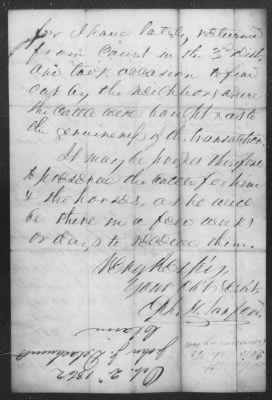 for I have lately returned
from Court in the 3rd Dist.
and took occasion to find
out by the neighbors where
the cattle were bought & as to
the genuineness of the transaction.
It may be proper therefore
to preserve the cattle for him
& the horses, as he will
be there in a few weeks
or days to receive them.
Very Respty.
Your Obt Servt.
Claim
John J.
1862